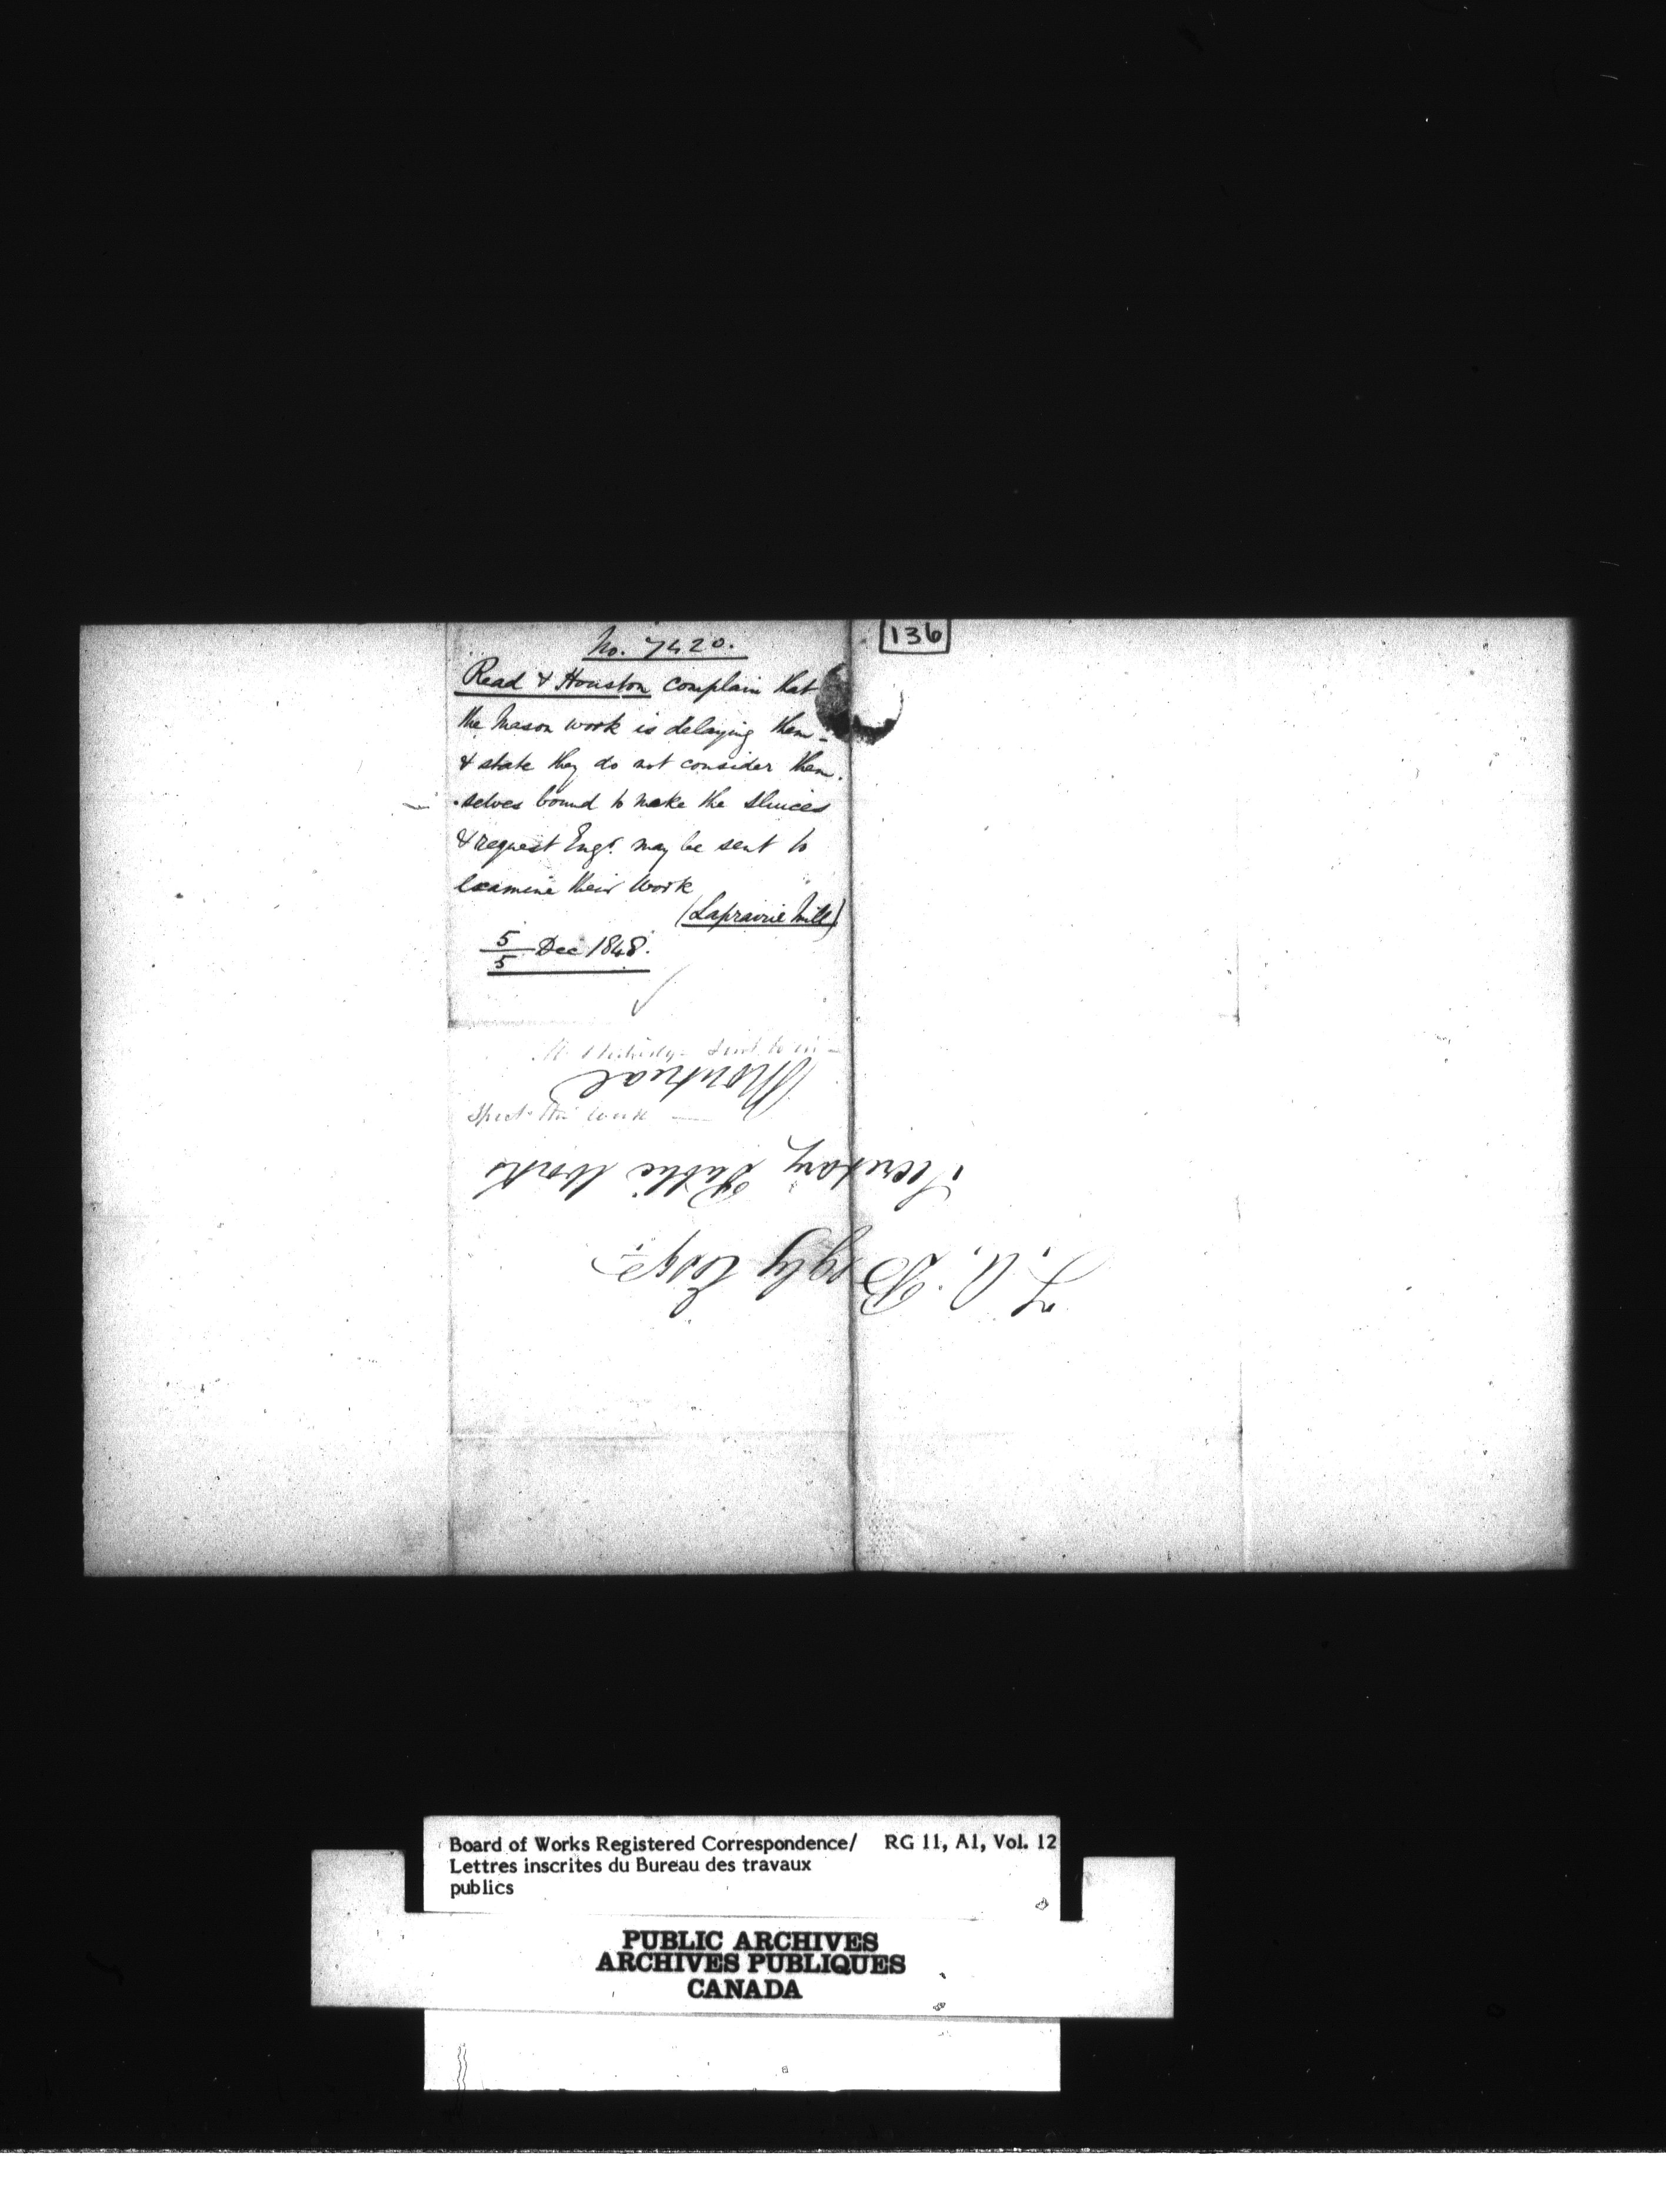 136
No. 7420.
Read & Houston complain that
the Mason work is delaying them -
& state they do not consider them.
.selves bound to make the Sluices
& request Engr. may be sent to
examine their work
(Laprairie Mill)
5/5 Dec 1848.
sent to in-
spect the work —
T. A. Begly Esqre
Secretary Public Works
Montreal
Board of Works Registered Correspondence/ RG 11, A1, Vol. 12
Lettres inscrites du Bureau des travaux
publics
PUBLIC ARCHIVES
ARCHIVES PUBLIQUES
CANADA